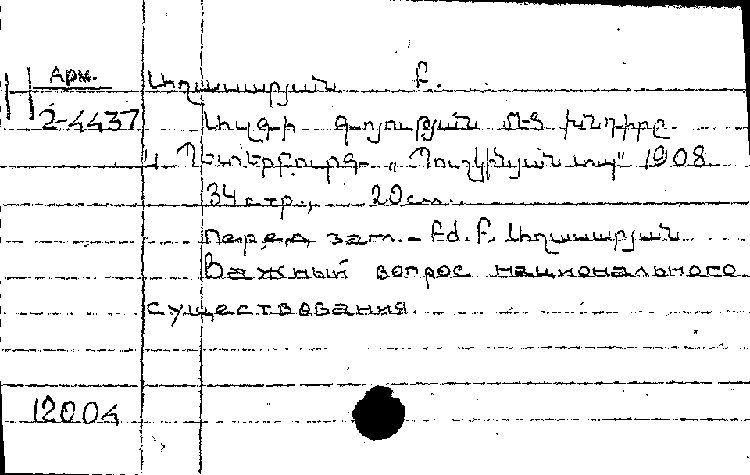 Арм.
2-4437
Լիղասարյան Բ.
Ազգի գոյության մեծ խնդիրը
Ս. Պետերբուրգ „Պուշկինյան տպ" 1908.
34 стр., 20 см.
Перед заг. – Եժ. Բ. Լիղասարյան
Важный вопрос национального
существования.
12004